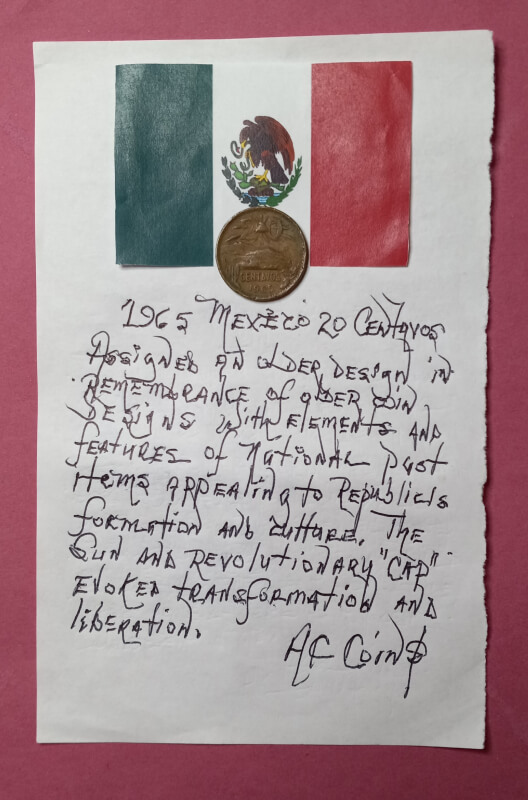 20
CENTAVOS
1965
1965 MEXICO 20 CENTAVOS
ASSIGNED AN OLDER DESIGN IN
REMEMBRANCE of OLDER COIN
DESIGNS with ELEMENTS AND
fEATURES of NATIONAL past
items appealing to Republics
formation AND culture. The
Sun AND REVOLUTIONARY "CAP"
EVOKED TRANSfORMATION AND
liberation.
AC Coin$